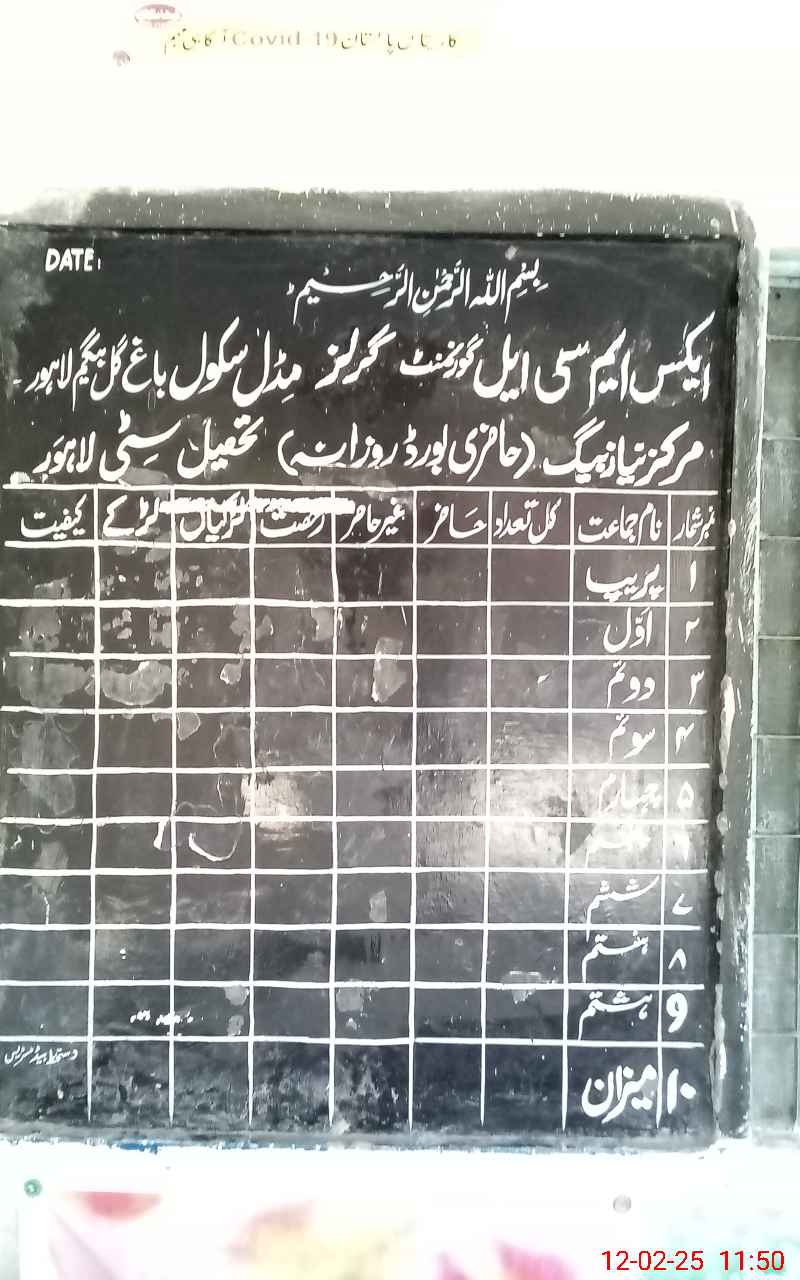 کارستان پاکستان Covid 19 آگاہی مہم
DATE:
بِسْمِ اللہِ الرَّحْمٰنِ الرَّحِیْمِ
ایکس ایم سی ایل گورنمنٹ گرلز مڈل سکول باغ گل بیگم لاہور۔
مرکز نیاز بیگ (حاضری بورڈ روزانہ) تحصیل سِٹی لاہور
نمبر شمار نام جماعت کل تعداد حاضر غیر حاضر رخصت لڑکیاں لڑکے کیفیت
۱ پریپ
۲ اوّل
۳ دوئم
۴ سوئم
۵ چہارم
۷ ششم
۸ ہفتم
9 ہشتم
۱۰ میزان
دستخط ہیڈ مسٹریس
12-02-25 11:50